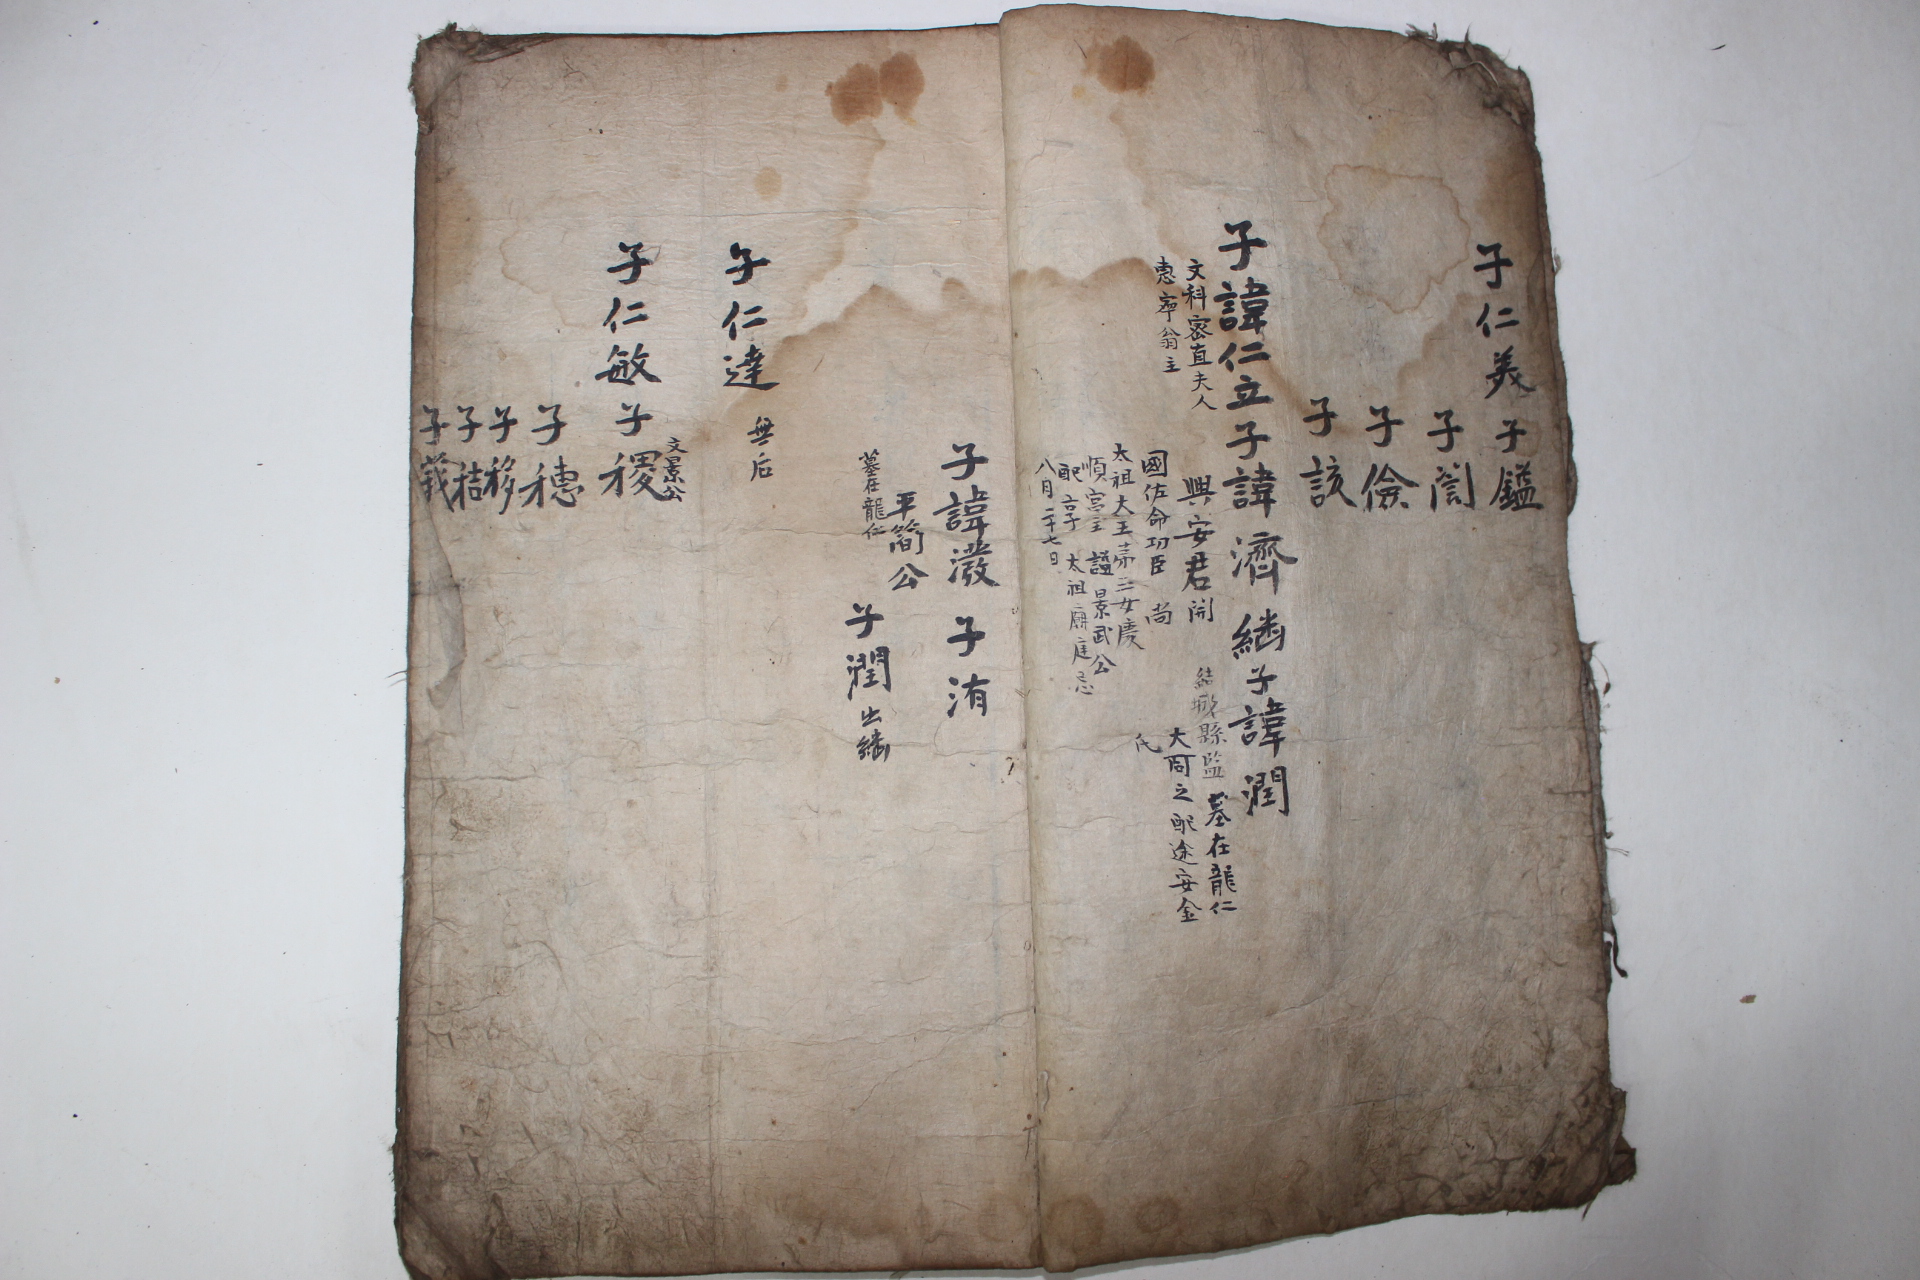 子仁義 子鎰
子誾
子儉
子該
子諱仁立 子諱濟 繼子諱潤
文科密直夫人
惠寧翁主
興安君開
國佐命功臣 尚
太祖大王第三女慶
順宮主 諡景武公
配享 太祖廟庭 忌
八月二十七日
結城縣監 墓在龍仁
大同之配遂安金
氏
子諱潑 子洧
平簡公
墓在龍仁
子潤 出繼
子仁達 無后
子仁敏 子稷
文景公
子穗
子移
子秸
子